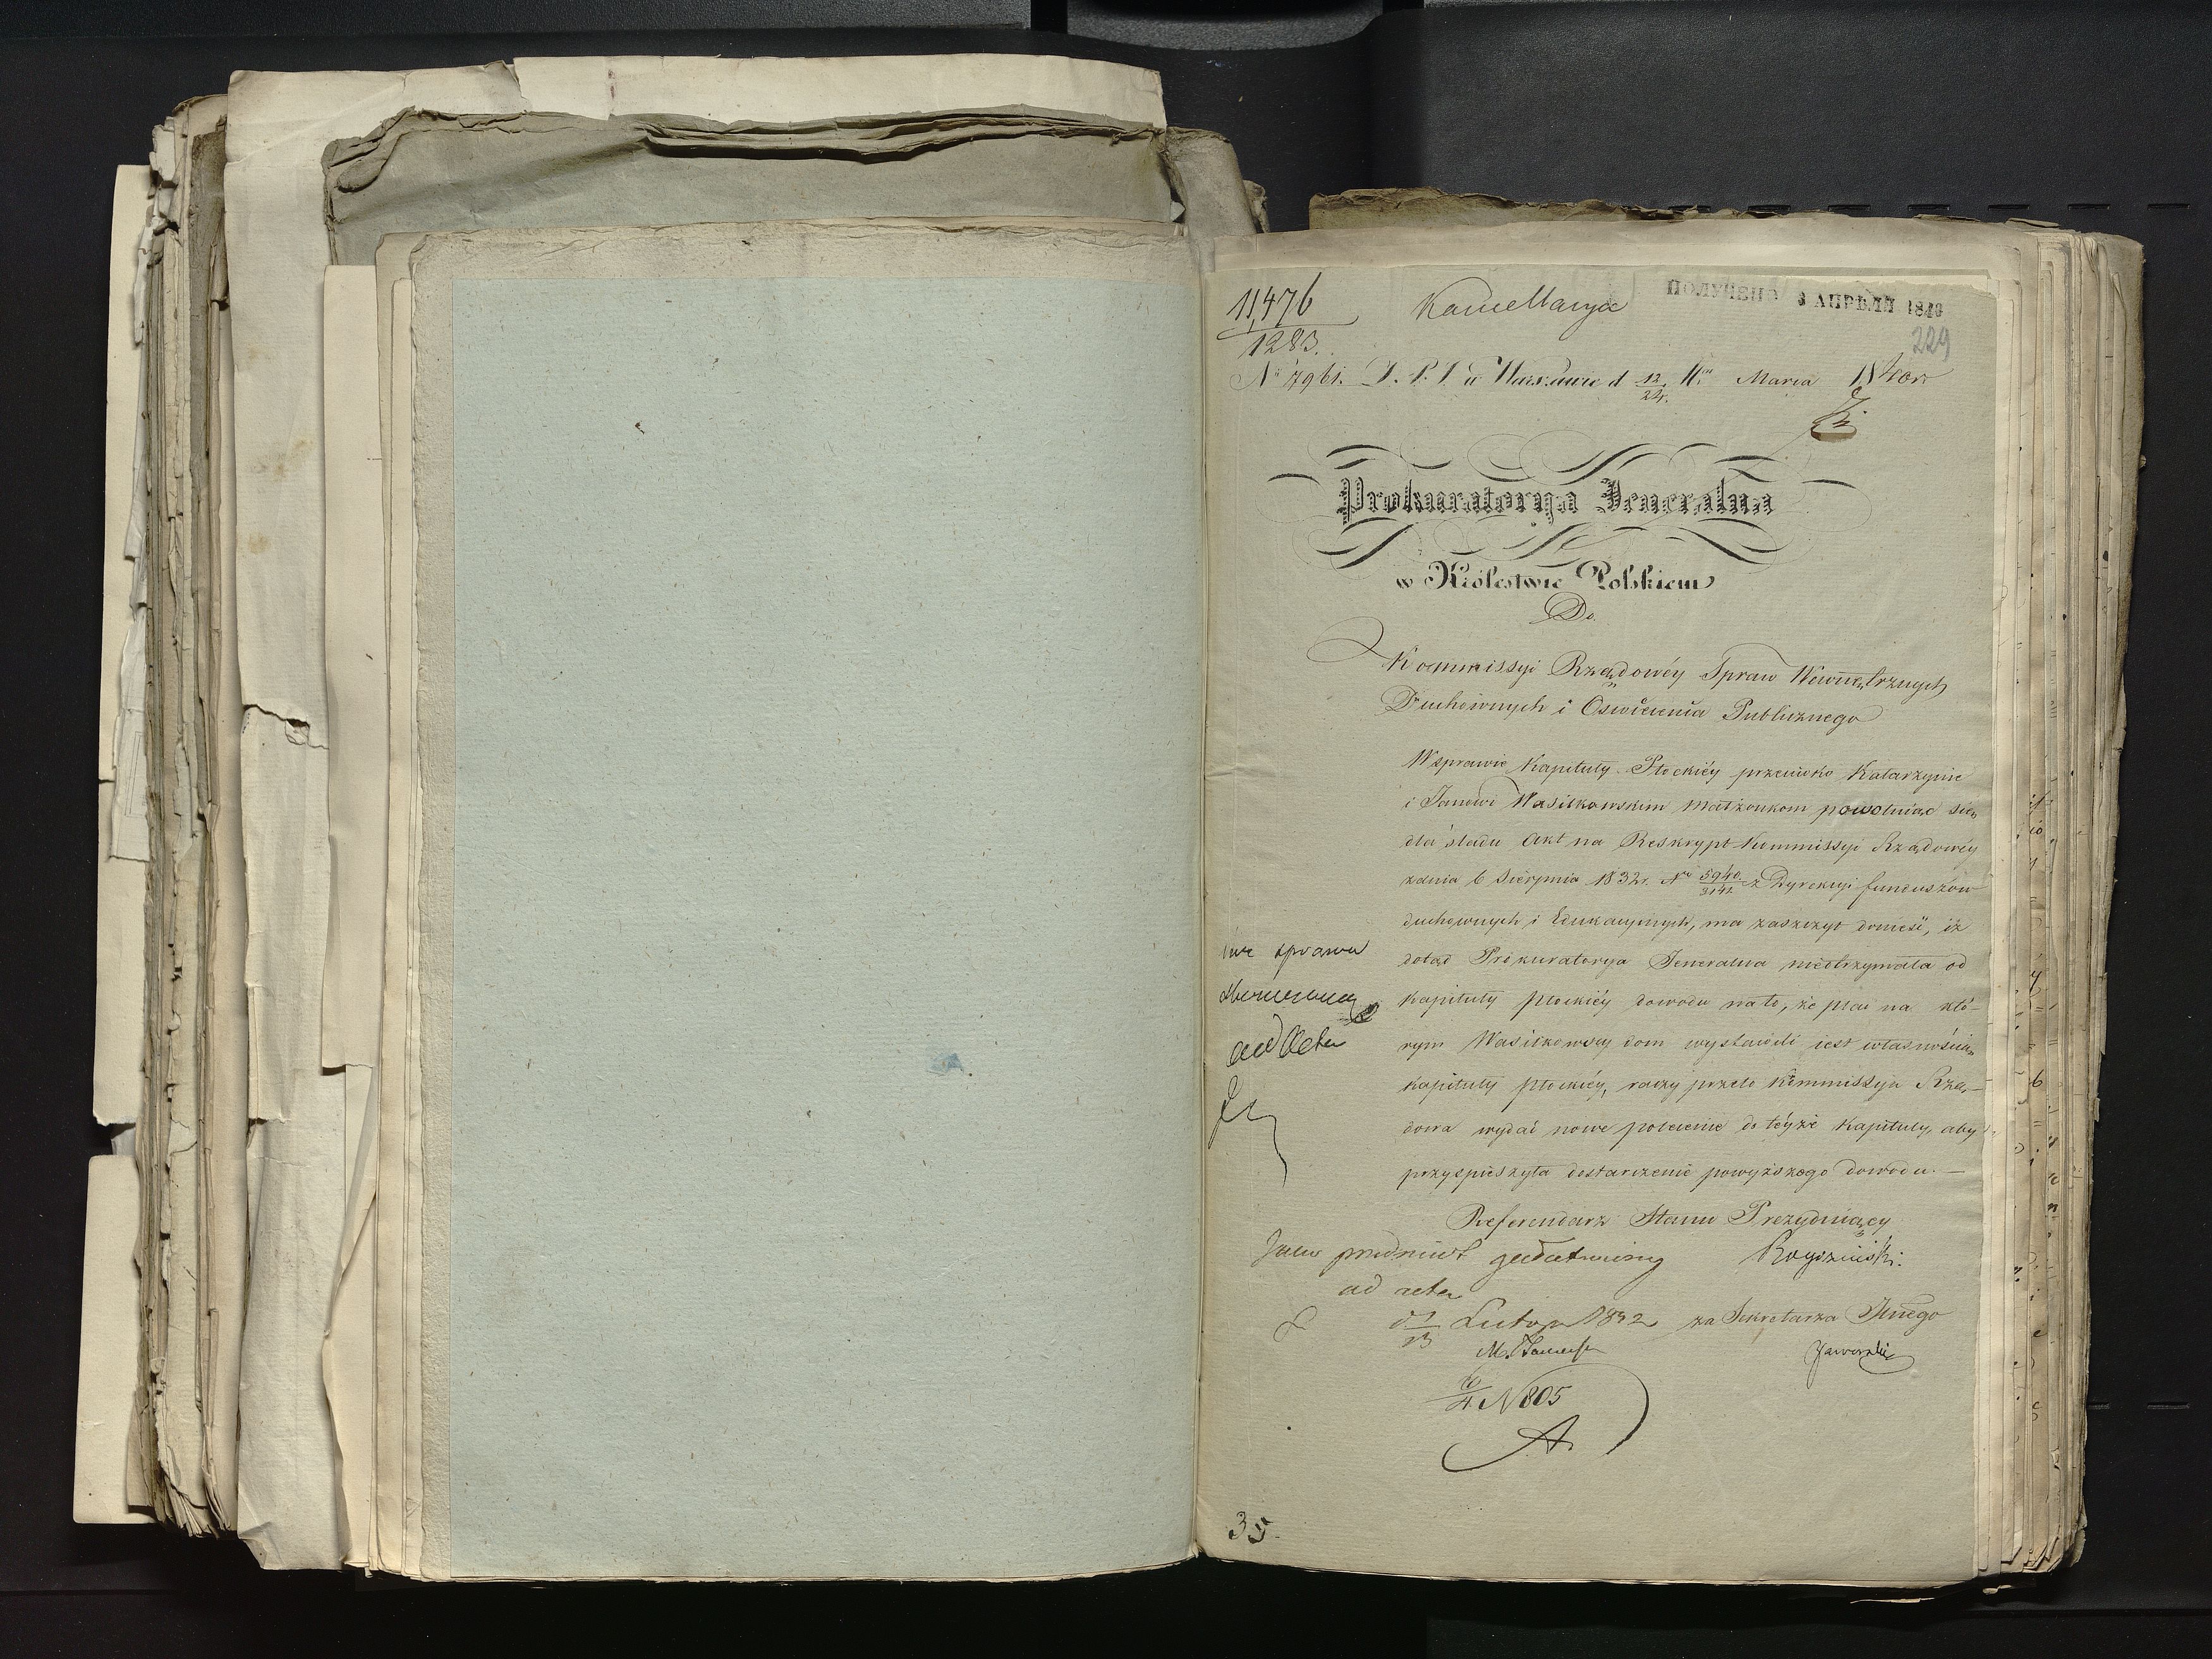 11,476
1283.
Kancellarya
ПОЛУЧЕНО 3 АПРѢЛЯ 1840
229
No 7961. D. P. S. w Warszawie d 12/24. Mca Marca 1840 r.
Prokuratorya Jeneralna
w Królestwie Polskiem
Do
Kommissyi Rządowéy Spraw Wewnętrznych
Duchownych i Oswiecenia Publicznego
W sprawie Kapituły Płockiéy przeciwko Katarzynie
i Janowi Wasilkowskim małżonkom powołuiąc się
dla śladu Akt na Reskrypt Kommissyi Rządowéy
z dnia 6 Sierpnia 1832 r. No 5940/3141 z Dyrekcyi funduszów
duchownych i Edukacyinych, ma zaszczyt donieść, iż
dotąd Prokuratorya Jeneralna nieotrzymała od
Kapituły płockiéy dowodu na to, że plac na któ-
rym Wasilkowscy dom wystawili iest własnością
kapituły płockiéy, raczy przeto Kommissya Rzą-
dowa wydać nowe polecenie do téyże Kapituły, aby
przyspieszyła dostarczenie powyższego dowodu. —
sprawa
ad Acta
Referendarz Stanu Prezyduiący
Jako przedmiot załatwiony
ad acta
d. 1/13 Lutego 1842
za Sekretarza Jnego
Jaworski
6/4 N 805
35.